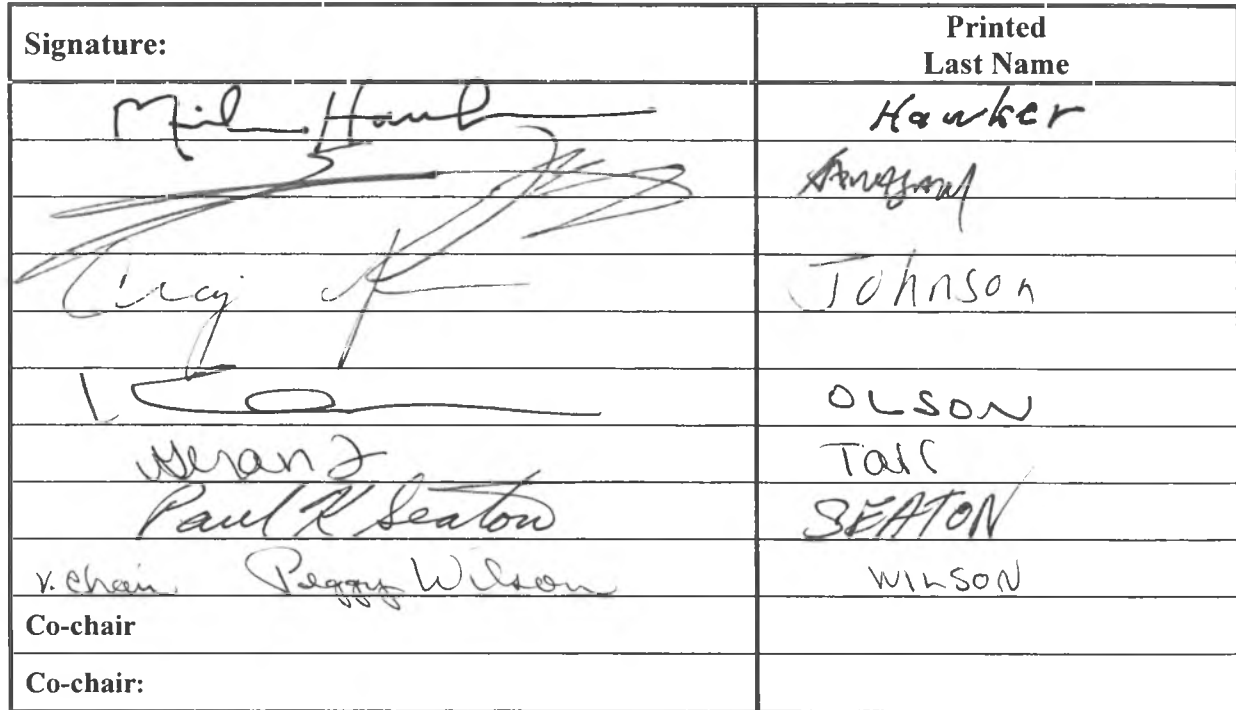 Signature: Printed Last Name
Hawker
Craig Johnson
OLSON
Tarr
Paul K Seaton SEATON
v. Chair Peggy Wilson WILSON
Co-chair
Co-chair: